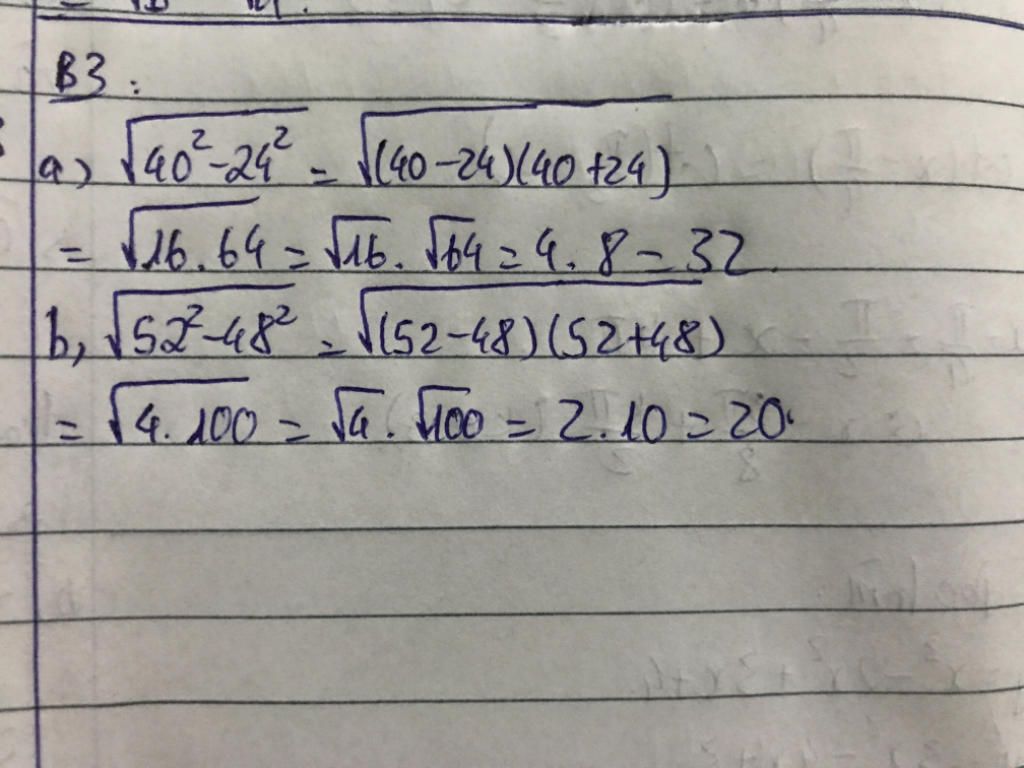 B3:
a) √(40² - 24²) = √((40 - 24)(40 + 24))
= √(16 . 64) = √16 . √64 = 4 . 8 = 32.
b, √(52² - 48²) = √((52 - 48)(52 + 48))
= √(4 . 100) = √4 . √100 = 2 . 10 = 20.